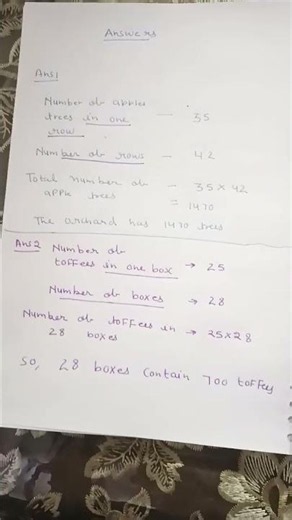 Answers
Ans1
Number of apple
trees in one — 35
row
Number of rows — 42
Total number of — 35 × 42
apple trees = 1470
The orchard has 1470 trees
Ans2 Number of
toffees in one box → 25
Number of boxes → 28
Number of toffees in → 25×28
28 boxes
So, 28 boxes contain 700 toffey